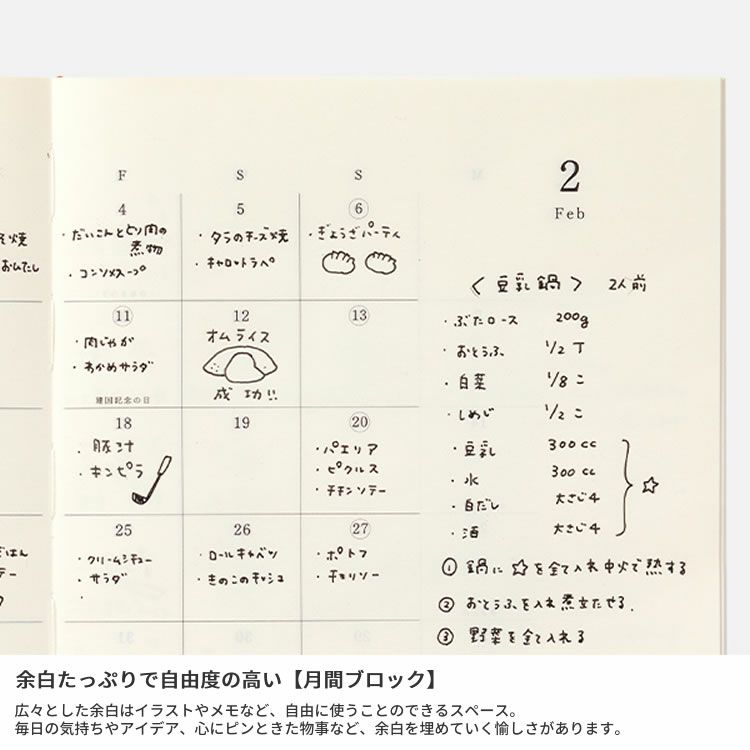 2
Feb
F S S
4 5 ⑥
・だいこんととり肉の
煮物
・コンソメスープ
・タラのチーズ焼
・キャロットラペ
・ぎょうざパーティ
焼
おひたし
⑪ 12 ⑬
・肉じゃが
・わかめサラダ
建国記念の日
オムライス
成功!!
18 19 ⑳
・豚汁
・キンピラ
・パエリア
・ピクルス
・チキンソテー
25 26 ㉗
・クリームシチュー
・サラダ
・
・ロールキャベツ
・きのこのキッシュ
・ポトフ
・チョリソー
ごはん
テー
〈豆乳鍋〉 2人前
・ぶたロース 200g
・おとうふ 1/2丁
・白菜 1/8こ
・しめじ 1/2こ
・豆乳 300cc
・水 300cc
・白だし 大さじ4
・酒 大さじ4
☆
① 鍋に☆を全て入れ中火で熱する
② おとうふを入れ煮立たせる.
③ 野菜を全て入れる
余白たっぷりで自由度の高い【月間ブロック】
広々とした余白はイラストやメモなど、自由に使うことのできるスペース。
毎日の気持ちやアイデア、心にピンときた物事など、余白を埋めていく愉しさがあります。